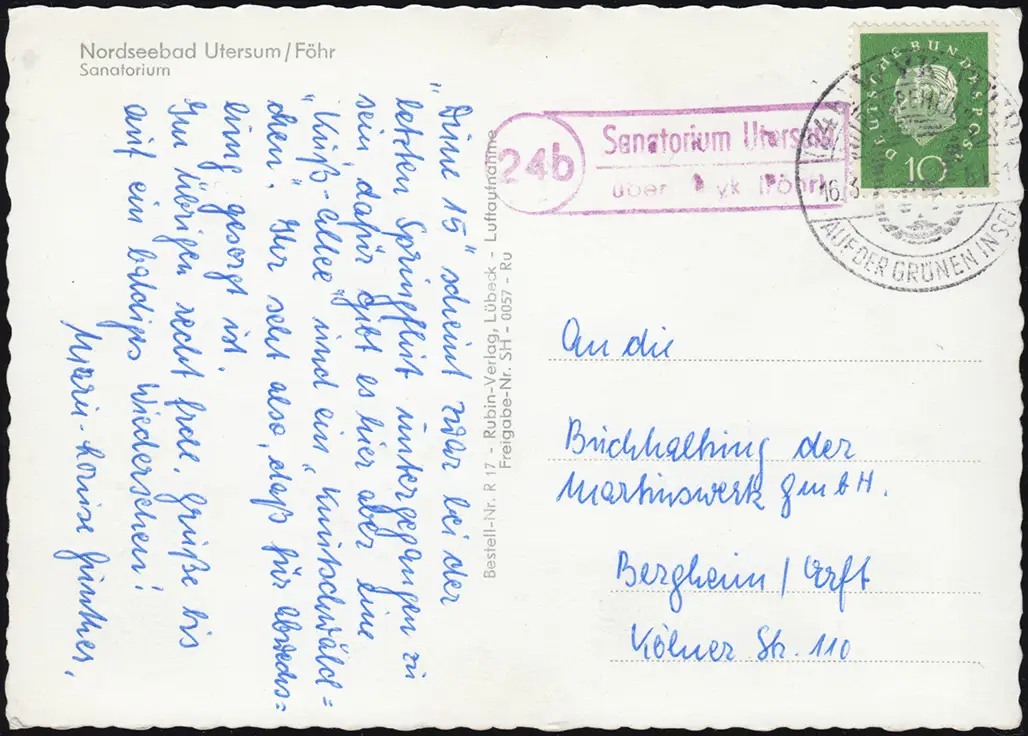 Nordseebad Utersum/Föhr
Sanatorium
"Düne 15" scheint zwar bei der
letzten Springflut untergegangen zu
sein, dafür gibt es hier aber eine
"Kuß-Allee" und ein "Knutschwäld=
chen". Ihr seht also, daß für Abwechs=
lung gesorgt ist.
Im übrigen recht frohe Grüße bis
auf ein baldiges Wiedersehen!
Marie-Louise Günther.
Bestell-Nr. R 17 - Rubin-Verlag, Lübeck - Luftaufnahme
Freigabe-Nr. SH - 0057 - Ru
24b
Sanatorium Utersum
über Wyk (Föhr)
DEUTSCHE BUNDESPOST
10
16.3
AUF DER GRÜNEN INSEL
An die
Buchhaltung der
Martinswerk GmbH.
Bergheim/Erft
Kölner Str. 110